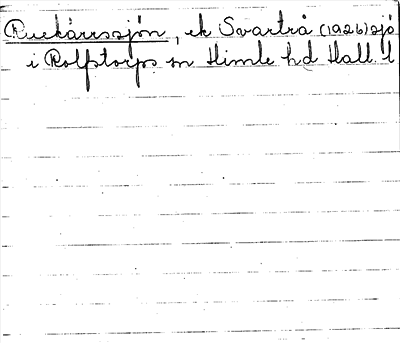 Risekärrssjön, ek Svartrå (1926) sjö
i Rolfstorps sn Himle hd Hall. l